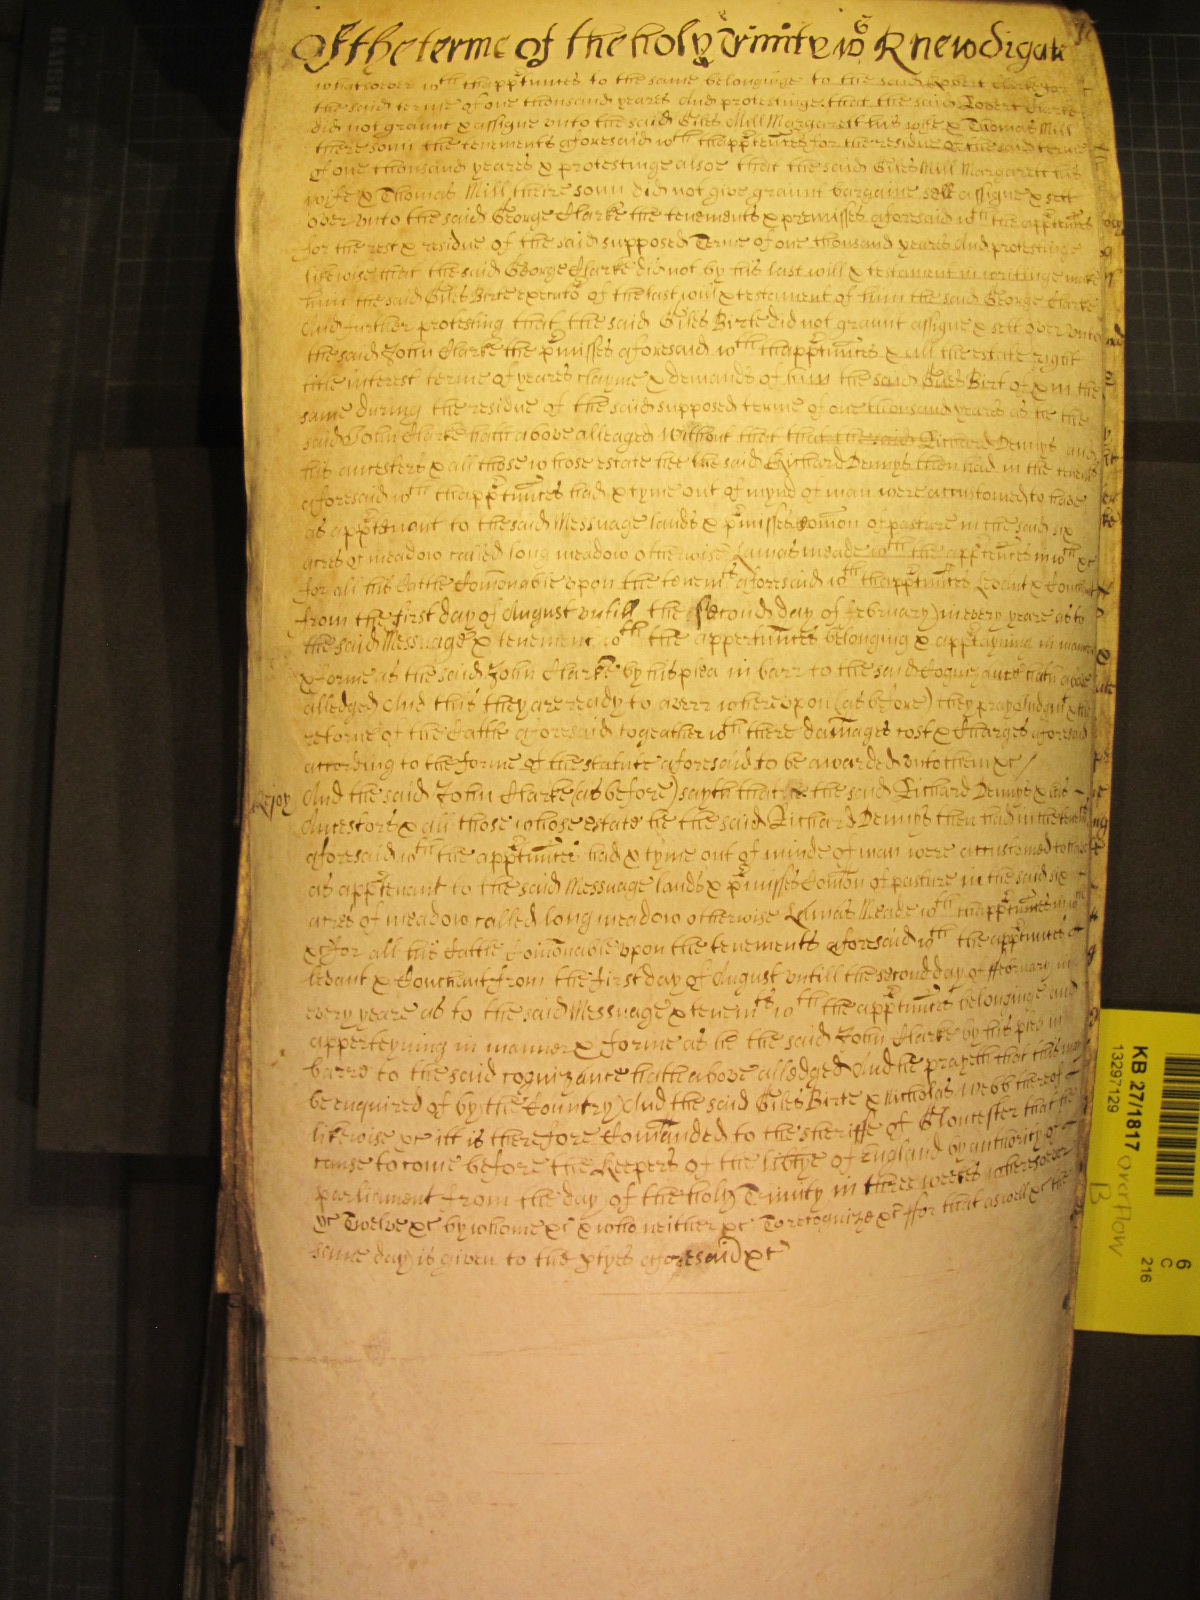 Of the terme of the holy Trinity 16 Knewdigate
whatsoever wth thappʳtunnces to the same belonginge to the said Robert Clarke for
the said terme of one thousand yeares And protestinge that the said Robert Clarke
did not graunt & assigne unto the said Giles Mill Margarett his wife & Thomas Mill
there sonn the tenements aforesaid wth thappʳtennces for the residue of the said terme
of one thousand yeares & protestinge alsoe that the said Giles Mill Margarett his
wife & Thomas Mill theire sonn did not give graunt bargaine sell assigne & sett
over unto the said George Clarke the tenements & premisses aforesaid wth the appʳtunnces
for the rest & residue of the said supposed Terme of one thousand yeares And protestinge
likewise that the said George Clarke did not by his last will & testament in writinge make
him the said Giles Birte executor of the last will & testament of him the said George Clarke
And further protesting that the said Giles Birte did not graunt assigne & sett over unto
the said John Clarke the pʳmisses aforesaid wth thappʳtunnces & all the estate right
title interest terme of yeares clayme & demands of him the said Giles Birt of & in the
same during the residue of the said supposed terme of one thousand yeares as he the
said John Clarke hath above alleaged Without that that the said Richard Dennys and
his ancestors & all those whose estate hee the said Richard Dennys then had in the tenemts
aforesaid wth thappʳtunnces had & tyme out of mynd of man were accustomed to have
as appʳtenant to the said Messuage lands & pʳmisses comon of pasture in the said six
acres of meadow called long meadow otherwise Lamas meade wth the appʳtennces in wth &c
for all his Cattle Comonable upon the tenemts aforesaid wth thappʳtunnces Levant & Couchant
from the first day of August untill the second day of February in every yeare as to
the said Messuage & tenement wth the appertunnces belonging & appʳtayning in manner
& forme as the said John Clarke by his plea in barr to the said Cognizance hath above
alledged And this they are ready to averr whereupon (as before) they pray Judgmt & the
retorne of the Cattle aforesaid togeather wth there damages cost & Charges aforesaid
according to the forme of the statute aforesaid to be awarded unto them &c /
Rejoy And the said John Clarke (as before) sayth that the said Richard Dennys & his
Ancestors & all those whose estate he the said Richard Dennys then had in the tenemts
aforesaid wth the appʳtunnces had & tyme out of minde of man were accustomed to have
as appʳtenant to the said Messuage lands & pʳmisses Comon of pasture in the said six
acres of meadow called long meadow otherwise Lamas Meade wth thappʳtunnces in wth
&c for all his Cattle Comonable upon the tenements aforesaid wth the appʳtunnces
levant & Couchant from the first day of August untill the second day of ffebruary in
every yeare as to the said Messuage & tenemts wth the appʳtunnces belonginge and
apperteyning in manner & forme as he the said John Clarke by his plea in
barre to the said cognizance hath above alledged And he prayeth that this may
be enquired of by the Country And the said Giles Birte & Nicholas Webb thereof
likewise &c itt is therefore Comanded to the sheriffe of Gloucester that he
cause to come before the Keepers of the libtye of England by authority of
parliament from the day of the holy Trinity in three weekes wheresoever
&c Twelve &c by whome &c & who neither &c To recognize &c ffor that as well &c the
same day is given to the ptyes aforesaid &c
KB 27/1817
13297129
overflow
B
6
C
216